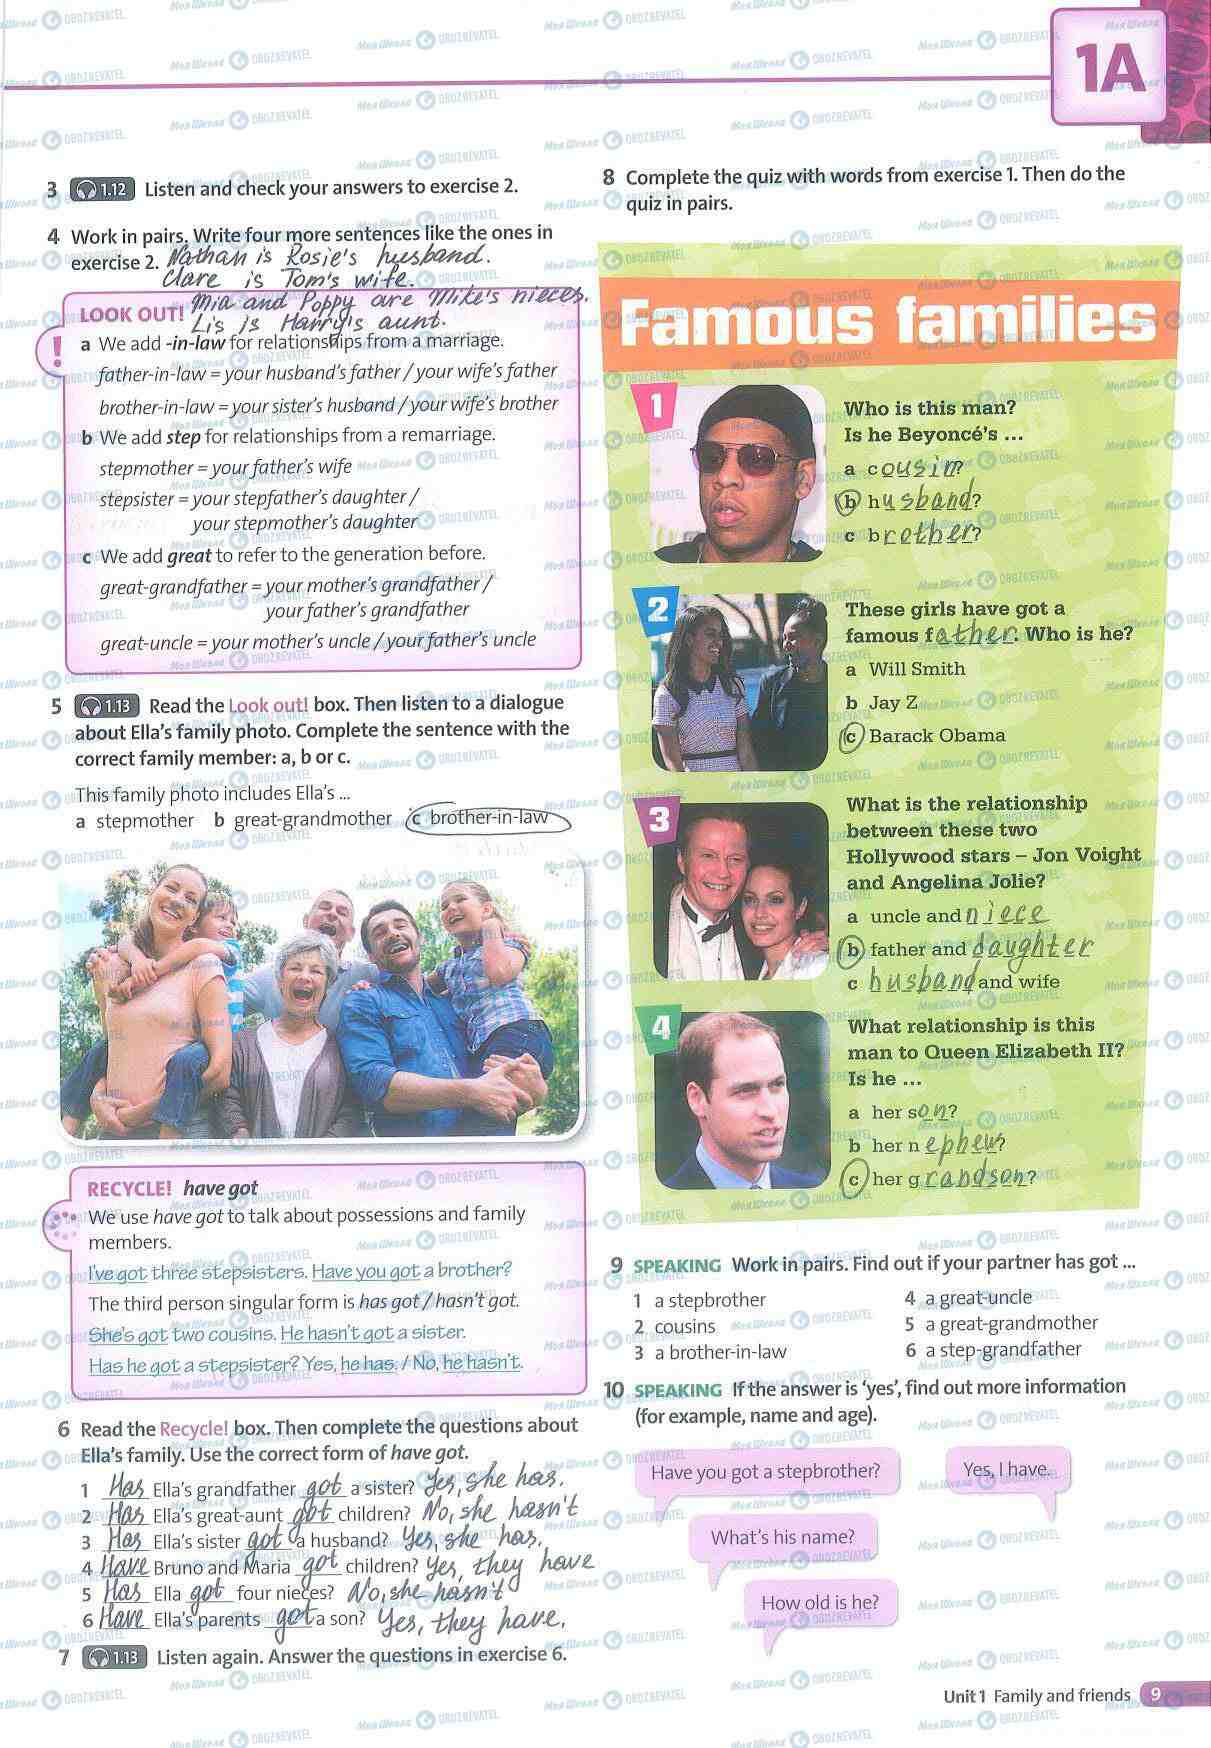 1A
3 1.12 Listen and check your answers to exercise 2.
4 Work in pairs. Write four more sentences like the ones in
exercise 2. Nathan is Rosie's husband.
Clare is Tom's wife.
Mia and Poppy are Mike's nieces.
LOOK OUT!
Lis is Harry's aunt.
a We add -in-law for relationships from a marriage.
father-in-law = your husband's father / your wife's father
brother-in-law = your sister's husband / your wife's brother
b We add step for relationships from a remarriage.
stepmother = your father's wife
stepsister = your stepfather's daughter /
your stepmother's daughter
c We add great to refer to the generation before.
great-grandfather = your mother's grandfather /
your father's grandfather
great-uncle = your mother's uncle / your father's uncle
5 1.13 Read the Look out! box. Then listen to a dialogue
about Ella's family photo. Complete the sentence with the
correct family member: a, b or c.
This family photo includes Ella's ...
a stepmother b great-grandmother c brother-in-law
RECYCLE! have got
We use have got to talk about possessions and family
members.
I've got three stepsisters. Have you got a brother?
The third person singular form is has got / hasn't got.
She's got two cousins. He hasn't got a sister.
Has he got a stepsister? Yes, he has. / No, he hasn't.
6 Read the Recycle! box. Then complete the questions about
Ella's family. Use the correct form of have got.
1 Has Ella's grandfather got a sister? Yes, she has.
2 Has Ella's great-aunt got children? No, she hasn't
3 Has Ella's sister got a husband? Yes, she has.
4 Have Bruno and Maria got children? Yes, they have
5 Has Ella got four nieces? No, she hasn't
6 Have Ella's parents got a son? Yes, they have.
7 1.13 Listen again. Answer the questions in exercise 6.
8 Complete the quiz with words from exercise 1. Then do the
quiz in pairs.
Famous families
1
Who is this man?
Is he Beyoncé's ...
a cousin?
b husband?
c brother?
2
These girls have got a
famous father. Who is he?
a Will Smith
b Jay Z
c Barack Obama
3
What is the relationship
between these two
Hollywood stars – Jon Voight
and Angelina Jolie?
a uncle and niece
b father and daughter
c husband and wife
4
What relationship is this
man to Queen Elizabeth II?
Is he ...
a her son?
b her nephew?
c her grandson?
9 SPEAKING Work in pairs. Find out if your partner has got ...
1 a stepbrother
2 cousins
3 a brother-in-law
4 a great-uncle
5 a great-grandmother
6 a step-grandfather
10 SPEAKING If the answer is 'yes', find out more information
(for example, name and age).
Have you got a stepbrother?
Yes, I have.
What's his name?
How old is he?
Unit 1 Family and friends 9
Моя Школа OBOZREVATEL